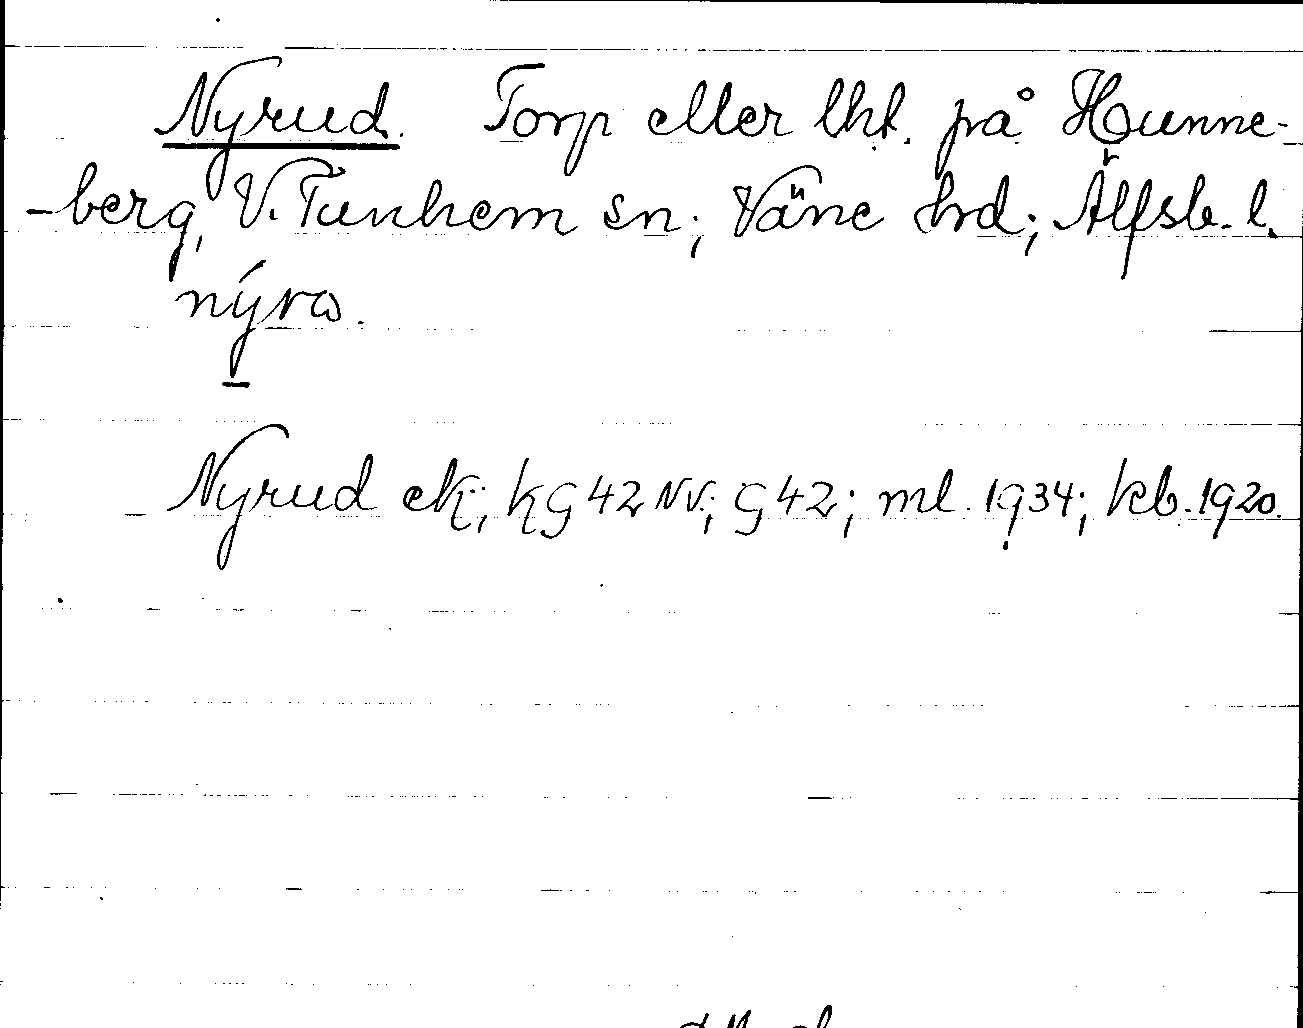 Nyrud. Torp eller lht. på Hunne-
-berg, V. Tunhem sn; Väne hrd; Älfsb. l.
nýra.
Nyrud ek; kg 42 NV; G 42; ml. 1934; kb. 1920.